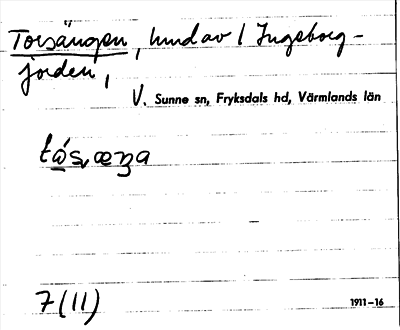 Torsängen, hud av / Ingeborg-
jorden,
V. Sunne sn, Fryksdals hd, Värmlands län
7(11)
1911–16